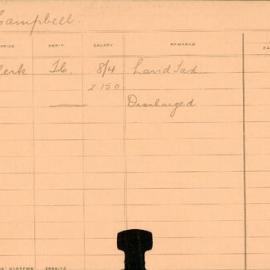 Campbell
UNIT SALARY REMARKS
lerk Tb. 8/4 Land Tax
2150
Discharged